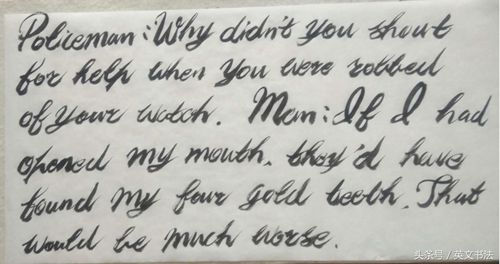 Policeman: Why didn't you shout
for help when you were robbed
of your watch. Man: If I had
opened my mouth, they'd have
found my four gold teeth. That
would be much worse.
头条号 / 英文书法